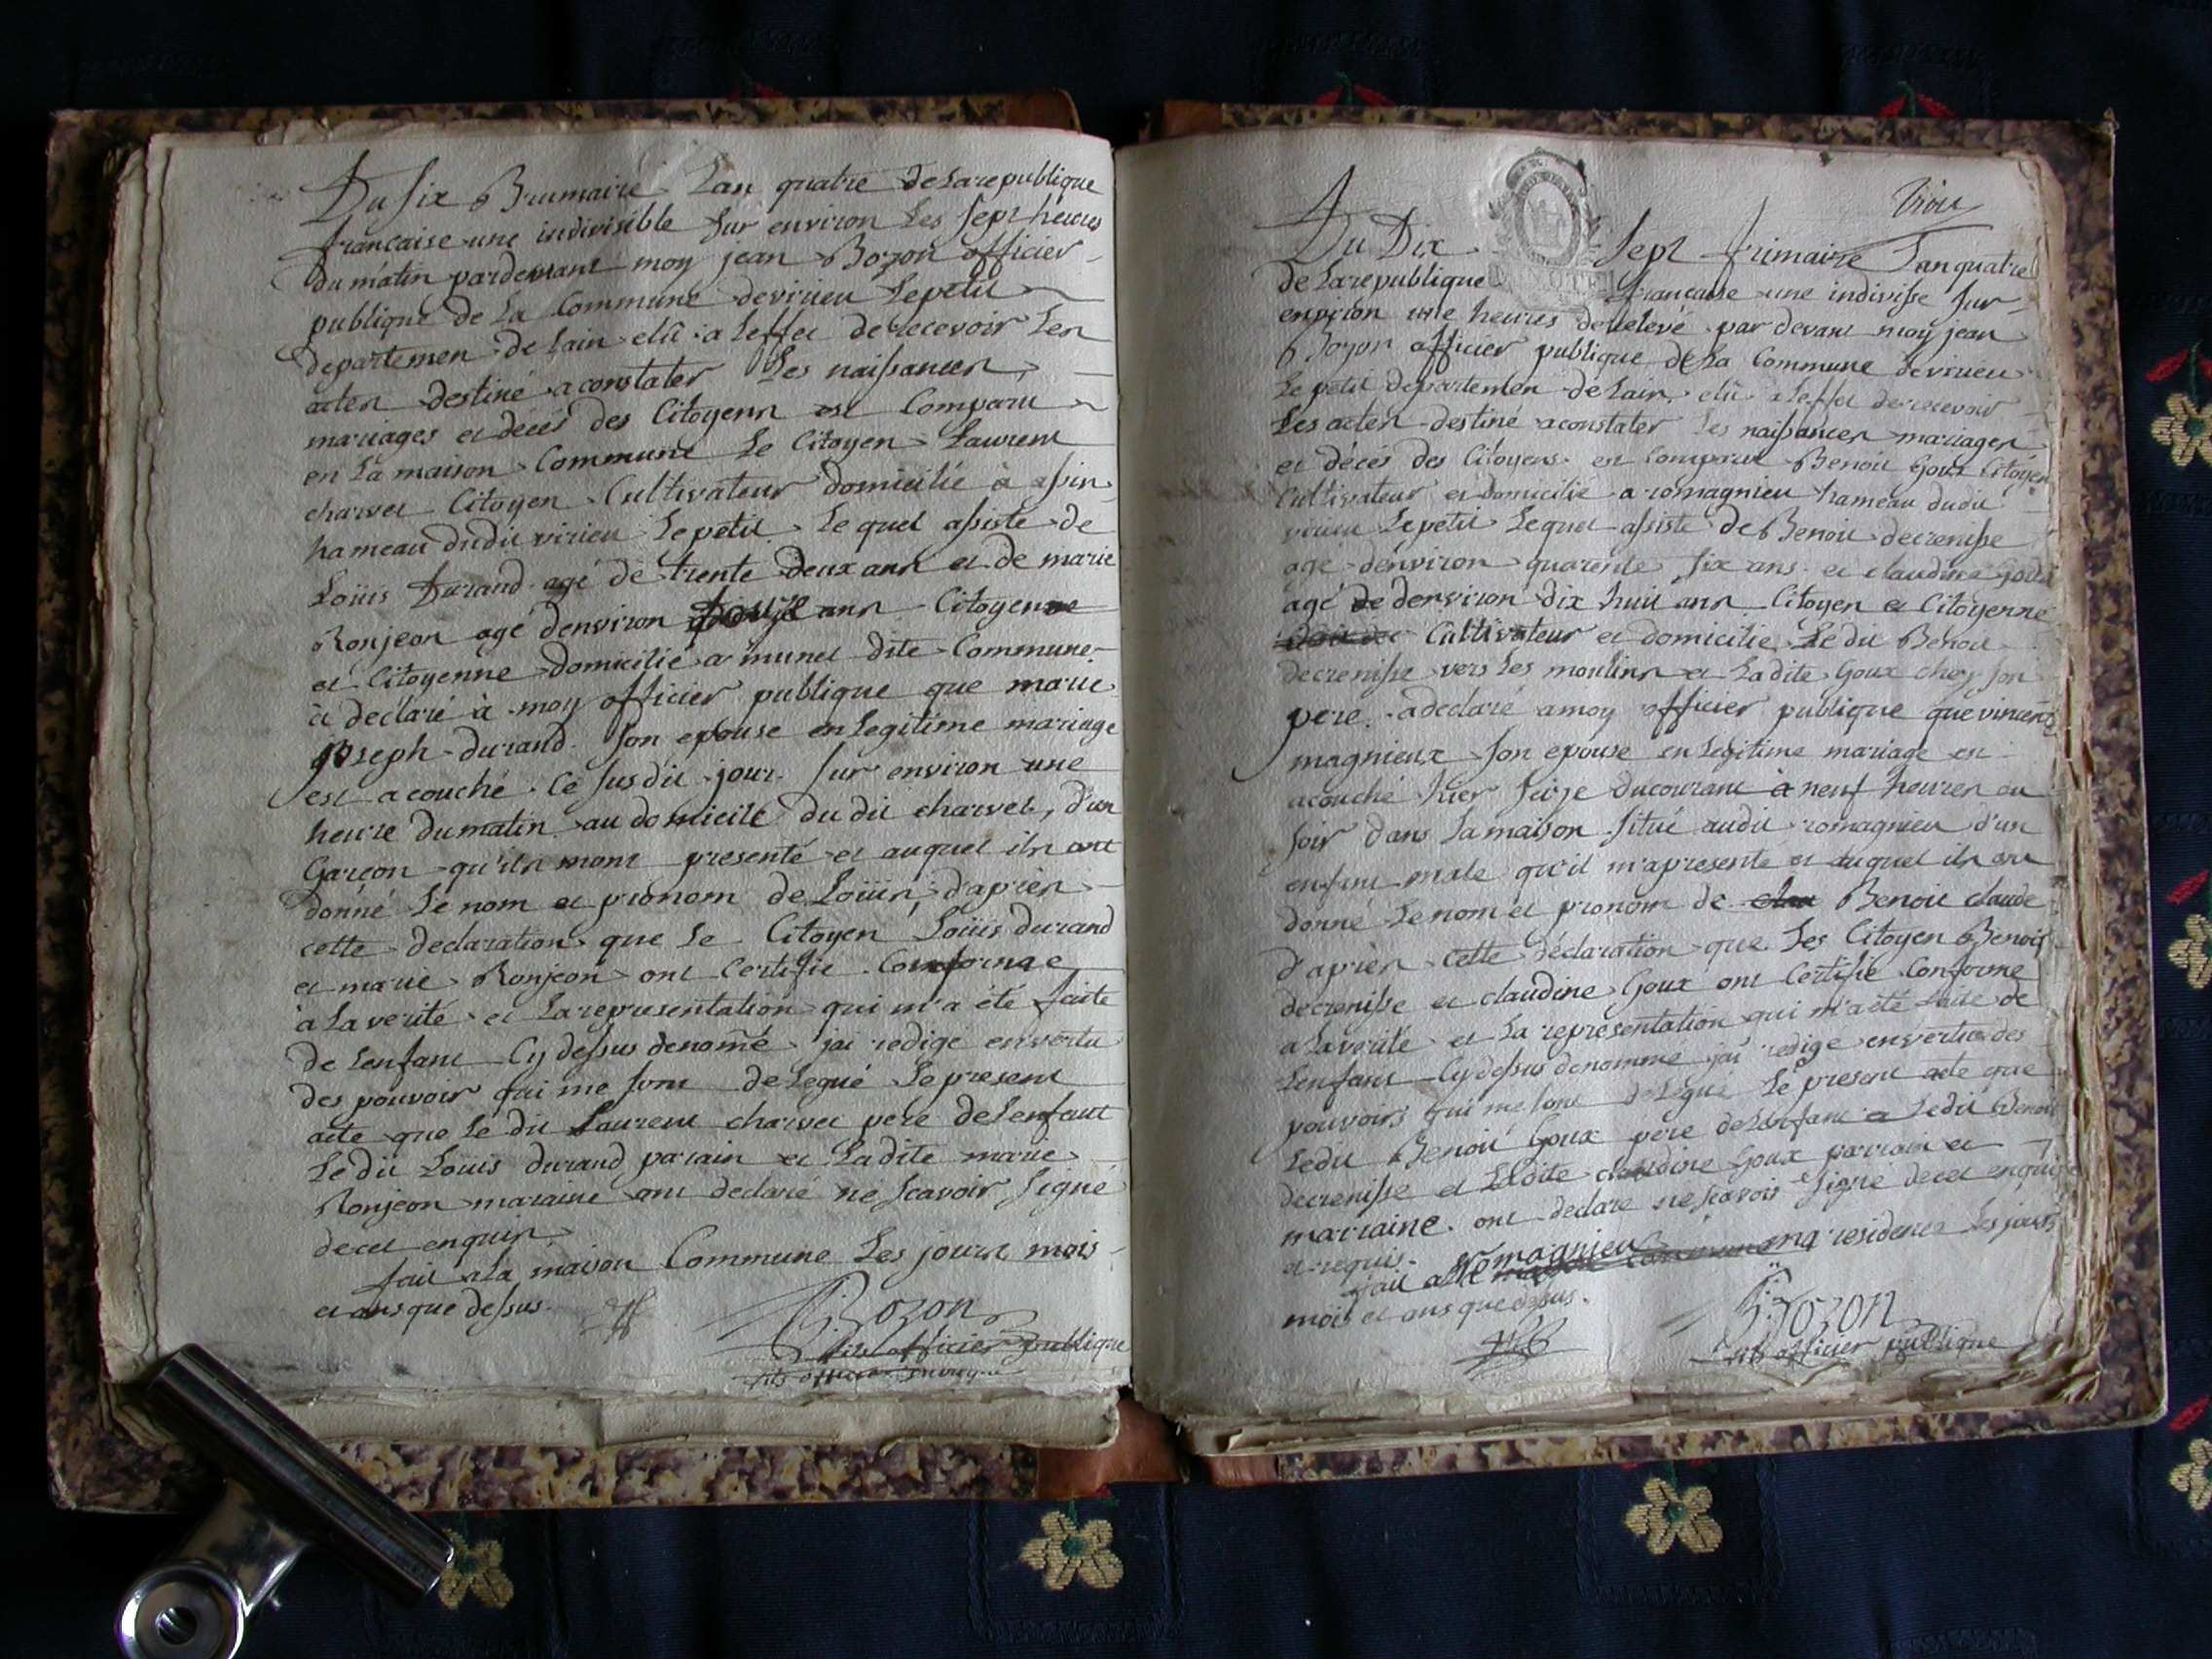 Du six Brumaire Lan quatre de Larepublique
francaise une indivisible sur environ Les sept heures
du matin pardevant moy jean Bozon officier
publique de La Commune devirieu Lepetit
departemen de Lain elû a Leffet de recevoir Les
actes destiné aconstater Les naissances,
mariages et décés des Citoyens est Comparu
en La maison Commune Le Citoyen Laurent
charvet Citoyen Cultivateur domicilié à assin
hameau dudit virieu Lepetit Lequel assiste de
Loüis Durand agé de trente deux ans et de marie
Ronjeon agé denviron ans Citoyen
et Citoyenne domicilié a munet dite Commune
a declaré à moy officier publique que marie
joseph durand son epouse en Legitime mariage
est acouché Ce susdit jour sur environ une
heure dumatin au domicile du dit charvet, d'un
Garcon qu'ils mont presenté et auquel ils ont
donné Le nom et pronom de Loüis, d'aprés
cette declaration que Le Citoyen Loüis durand
et marie Ronjeon ont Certifié Conforme
a La verité et Larepresentation qui m'a été faite
de Lenfant Cy dessus denomé jai redigé en vertu
des pouvoir qui me sont delegué Le present
acte que Le dit Laurent charvet pere de Lenfant
Le dit Louis durand parain et Ladite marie
Ronjeon maraine ont declaré ne scavoir signé
decet enquis
fait a La maison Commune Les jours mois
et ans que dessus.
Bozon
fils officier publique
fils officier publique
Du Dix Sept frimaire Lan quatre
de Larepublique francaise une indivisse sur
environ une heures derelevé par devant moy jean
Bozon officier publique de La Commune devirieu
Le petit departemen de Lain, elû a Leffet de recevoir
Les actes destiné aconstater Les naissances mariages
et décés des Citoyens est Comparu Benoit Goux Citoyen
Cultivateur et domicilié a romagnieu hameau dudit
virieu Lepetit Lequel assiste de Benoit decrenisse
agé d'environ quarente six ans et claudine Goux
agé de denviron dix huit ans Citoyen et Citoyenne
Cultivateur et domicilié Ledit Benoit
decrenisse vers Les moulins et Ladite Goux chez son
pere a declaré amoy officier publique que vincente
magnieux son epouse en Legitime mariage est
acouché hier seize ducourant à neuf heures du
soir dans Lamaison situé audit romagnieu d'un
enfant male qu'il m'apresenté et auquel ils ont
donné Lenom et pronom de Benoit claude
d'aprés cette declaration que Les Citoyen Benoit
decrenisse et claudine Goux ont Certifié Conforme
a Laverité et La representation qui m'a été faite de
Lenfant Cydessus denommé jai redigé envertu des
pouvoirs qui me sont delegué Le present acte que
Ledit Benoit Goux pere de Lenfant Ledit Benoit
decrenisse et Ladite claudine Goux parrain et
marraine ont declaré ne scavoir signé decet enquis
et requis.
fait a Romagnieu ma residence Les jours
mois et ans que dessus.
Bozon
fils officier publique